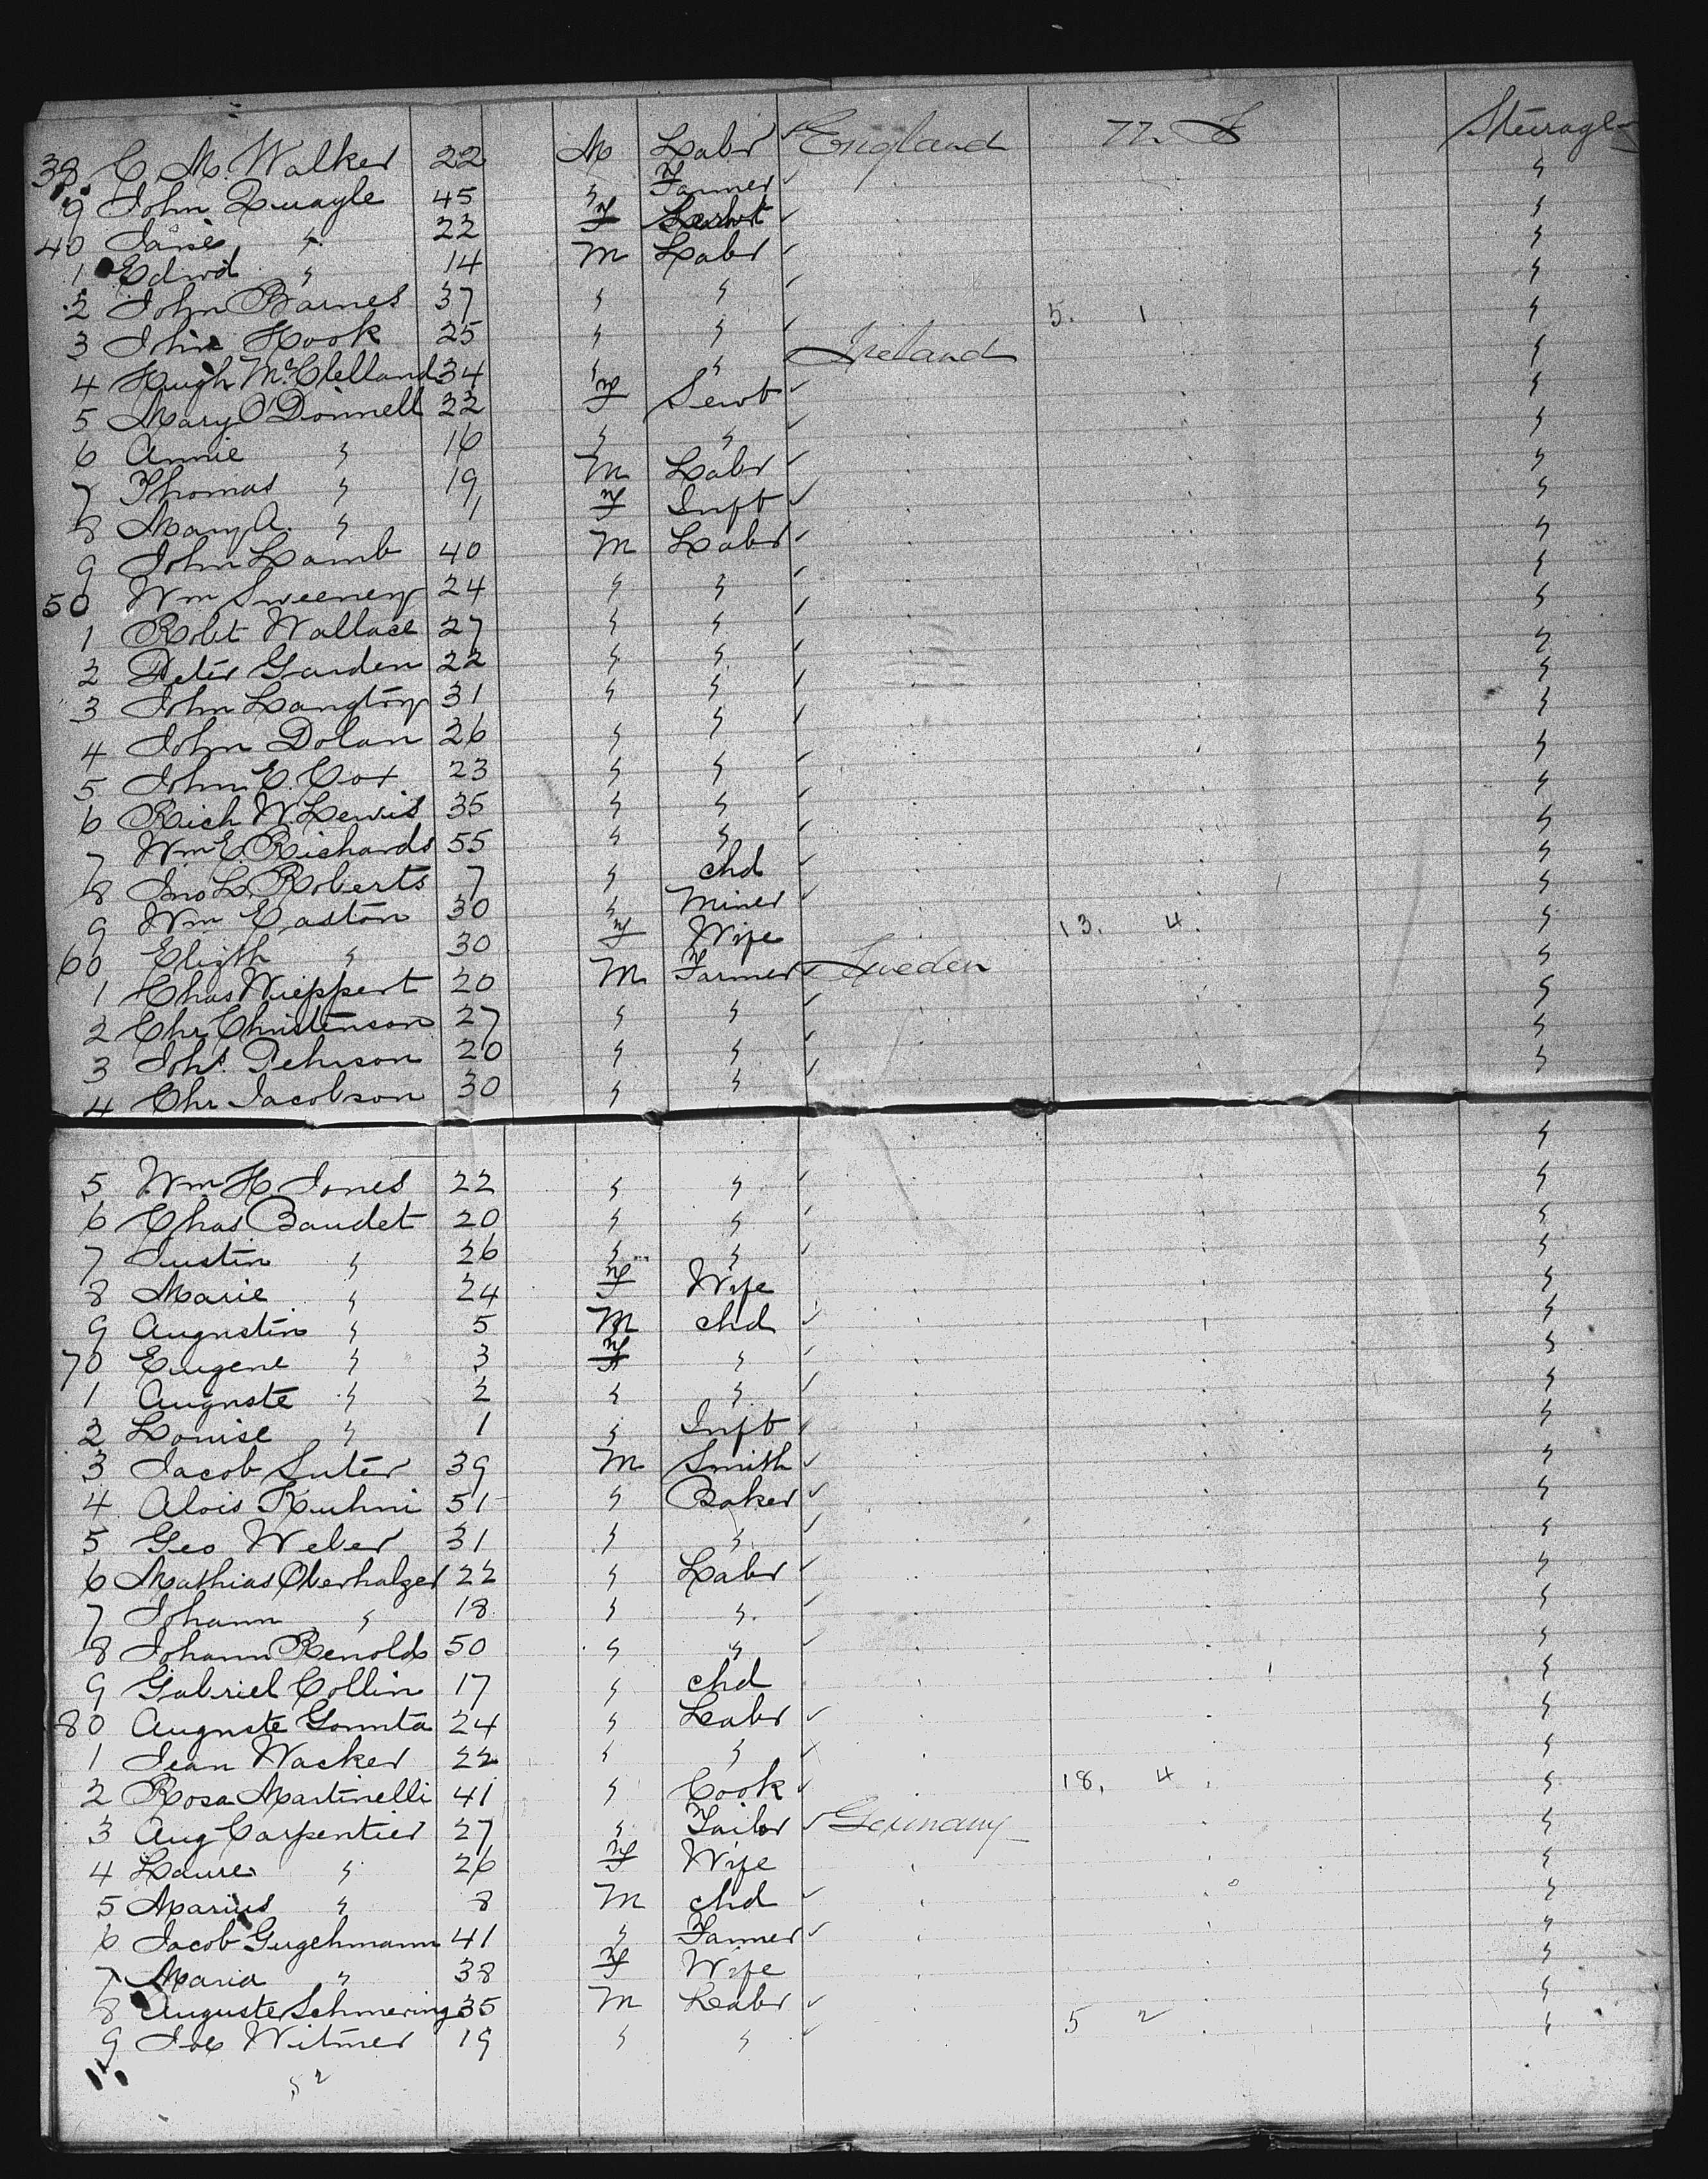 38 C. M. Walker 22 M Labr ✓ England M F Steerage
9 John Quayle 45 " Farmer ✓ "
40 Jane " 22 F Servt ✓ "
1 Edwd " 14 M Labr ✓ "
2 John Barnes 37 " " ✓ "
3 John Hook 25 " " ✓ 5. 1 "
4 Hugh McClelland 34 " " Ireland "
5 Mary O'Donnell 22 F Servt ✓ "
6 Annie " 16 " " ✓ "
7 Thomas " 19 M Labr ✓ "
8 Mary A. " 1 F Inft ✓ "
9 John Lamb 40 M Labr ✓ "
50 Wm Sweeney 24 " " ✓ "
1 Robt Wallace 27 " " ✓ "
2 Peter Garden 22 " " ✓ "
3 John Langtry 31 " " ✓ "
4 John Dolan 26 " " ✓ "
5 John E. Cox 23 " " ✓ "
6 Rich W. Lewis 35 " " ✓ "
7 Wm E. Richards 55 " " ✓ "
8 Jno L. Roberts 7 " chd ✓ "
9 Wm Easton 30 " Miner ✓ "
60 Elizth " 30 F Wife 13. 4. "
1 Chas Wieppert 20 M Farmer ✓ Sweden "
2 Chr. Christenson 27 " " ✓ "
3 Johs. Pehrson 20 " " ✓ "
4 Chr Jacobson 30 " " ✓ "
5 Wm H. Jones 22 " " ✓ "
6 Chas Baudet 20 " " ✓ "
7 Justin " 26 " " ✓ "
8 Marie " 24 F Wife "
9 Augustin " 5 M chd ✓ "
70 Eugene " 3 F " ✓ "
1 Auguste " 2 " " ✓ "
2 Louise " 1 " Inft ✓ "
3 Jacob Suter 39 M Smith ✓ "
4 Alois Kuhni 51 " Baker ✓ "
5 Geo Weber 31 " " ✓ "
6 Mathias Oberhalzer 22 " Labr ✓ "
7 Johann " 18 " " ✓ "
8 Johann Renolds 50 " " ✓ "
9 Gabriel Collin 17 " chd "
80 Auguste Gonnta 24 " Labr ✓ "
1 Jean Wacker 22 " " ✓ "
2 Rosa Martinelli 41 " Cook ✓ 18. 4 "
3 Aug Carpentier 27 " Tailor ✓ Germany "
4 Laure " 26 F Wife "
5 Marius " 8 M chd ✓ "
6 Jacob Gugehmann 41 " Farmer ✓ "
7 Maria " 38 F Wife "
8 Auguste Schmering 35 M Labr ✓ "
9 Joe Witmer 19 " " ✓ 5 2 "
52